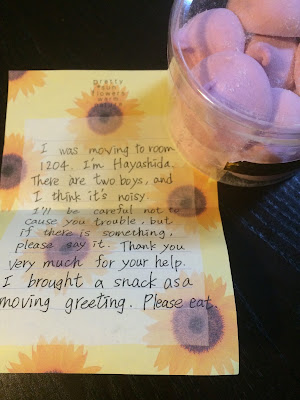 pretty
sun
flowers
warm
I was moving to room
1204. I'm Hayashida.
There are two boys, and
I think it's noisy.
I'll be careful not to
cause you trouble, but
if there is something,
please say it. Thank you
very much for your help.
I brought a snack as a
moving greeting. Please eat.